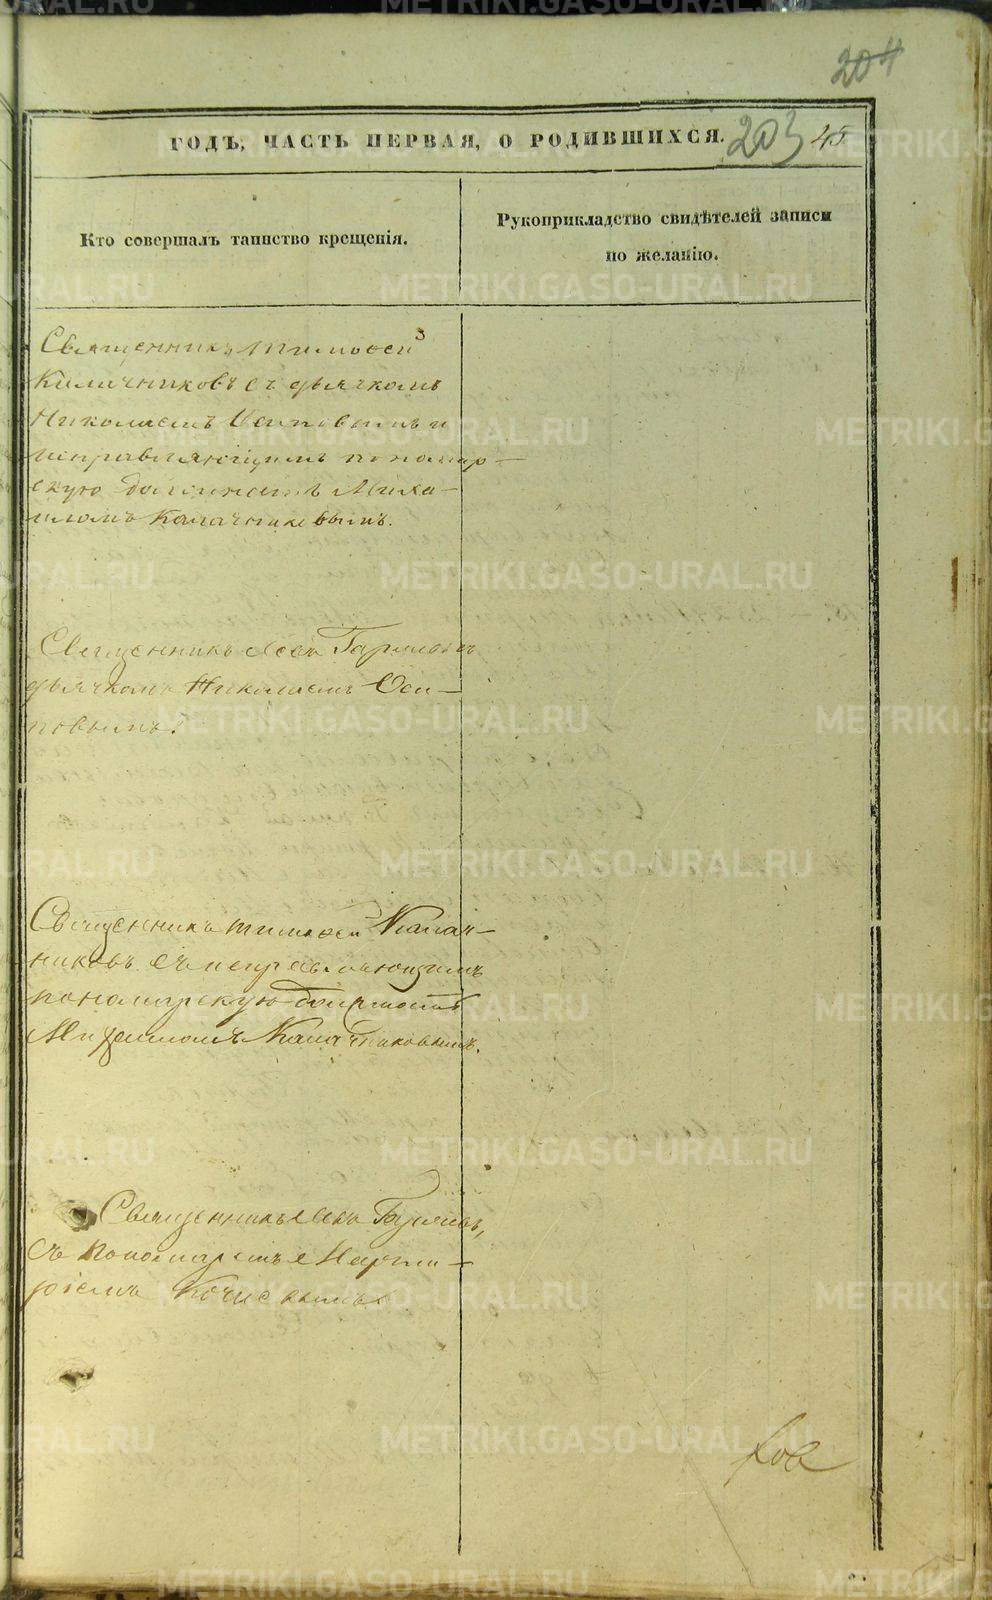 204
ГОДЪ, ЧАСТЬ ПЕРВАЯ, О РОДИВШИХСЯ. 203 45
Кто совершалъ таинство крещенія.
Рукоприкладство свидѣтелей записи
по желанію.
Священникъ Тимоѳей
Калачниковъ съ дьячкомъ
Николаемъ Осиповымъ и
исправляющимъ пономар-
скую должность Миха-
иломъ Калачниковымъ.
Священникъ Левъ съ
дьячкомъ Николаемъ Оси-
повымъ.
Священникъ Тимоѳей Калач-
никовъ съ исправляющимъ
пономарскую должность
Михаиломъ Калачниковымъ.
Священникъ Левъ
съ Пономаремъ
METRIKI.GASO-URAL.RU